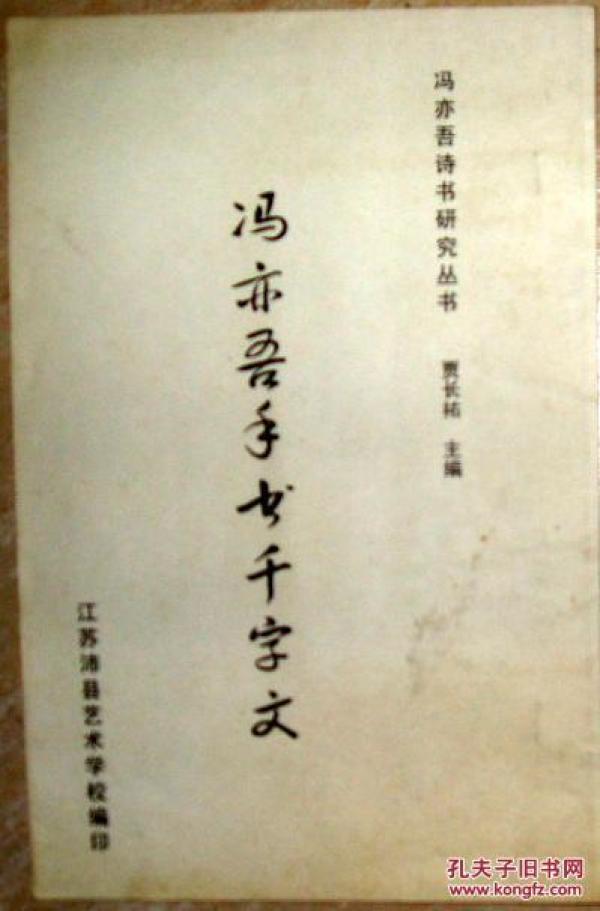 冯亦吾诗书研究丛书 贾长祐 主编
冯亦吾手书千字文
江苏沛县艺术学校编印
孔夫子旧书网
www.kongfz.com